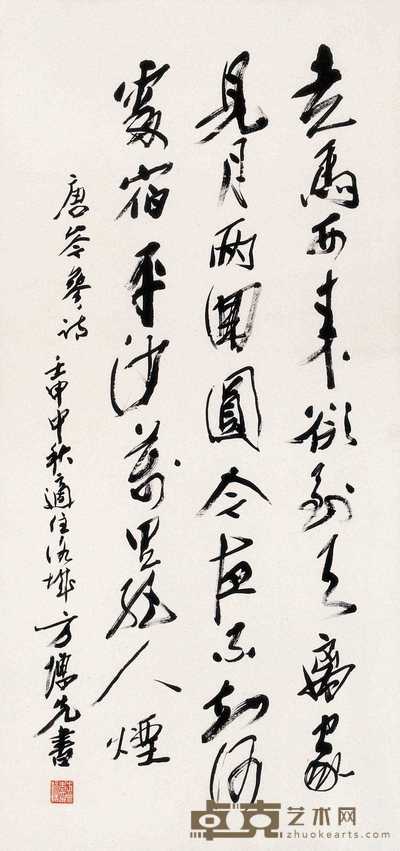 走馬西來欲到天離家
見月兩團圓今夜不知何
處宿平沙萬里絕人煙
唐岑參詩 壬申中秋適住城方書
卓克艺术网
zhuokearts.com